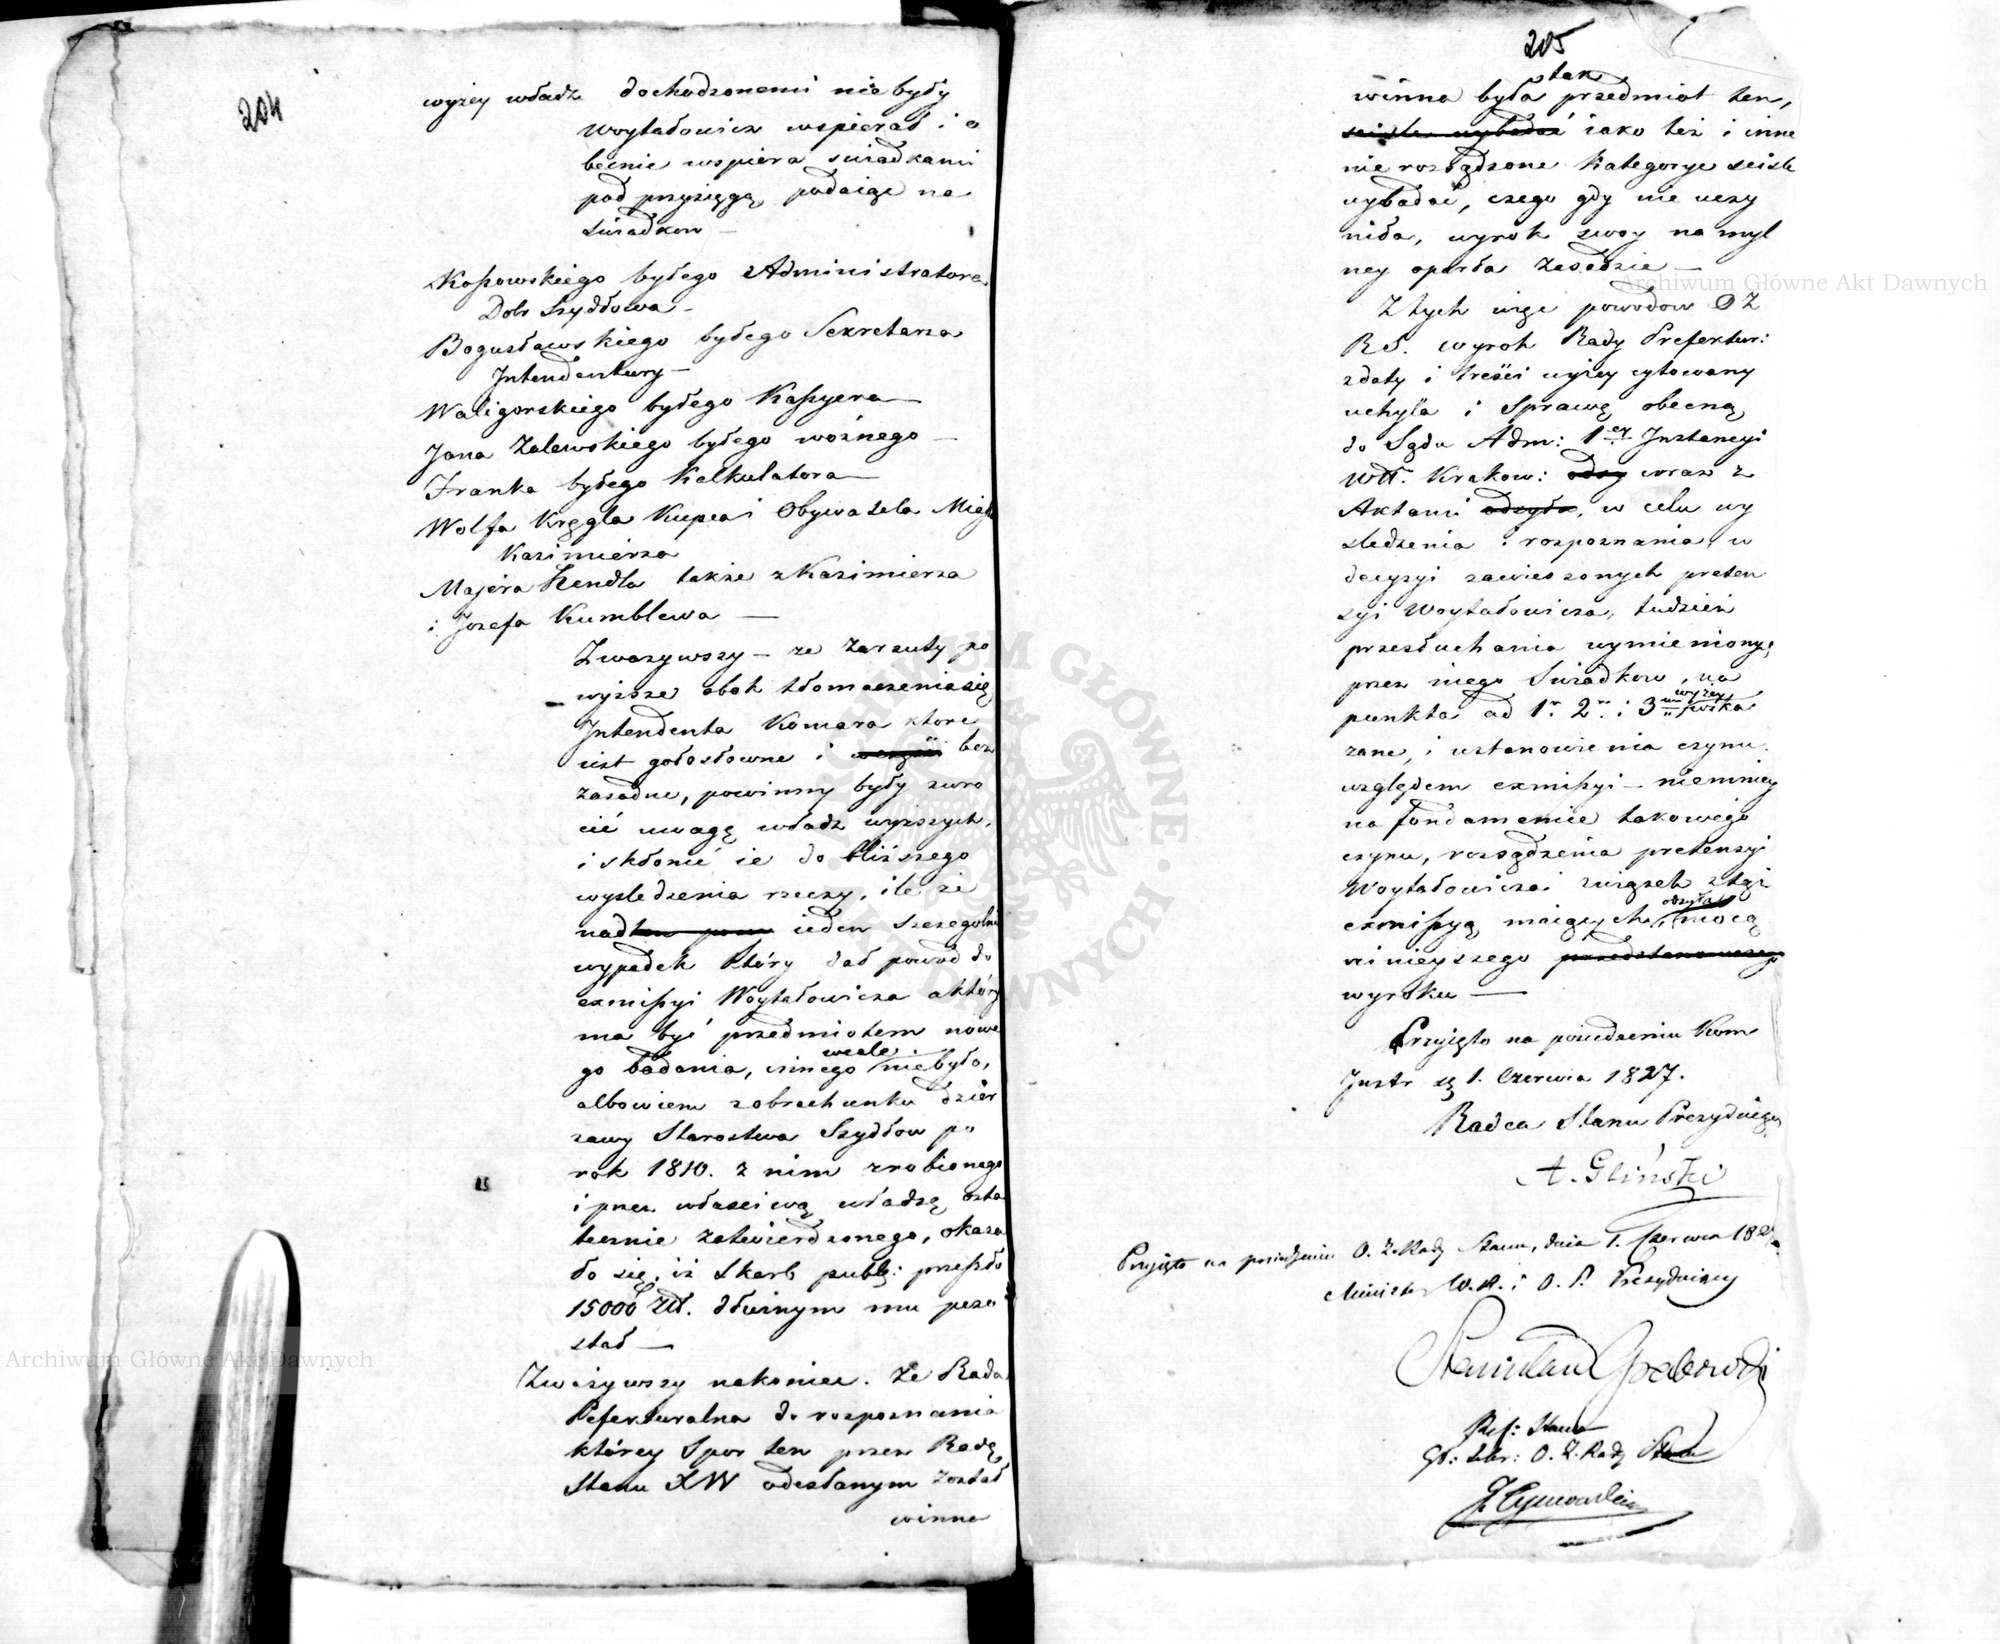 204
wyżey władz dochodzonemi nie były
Woytałowicz wspierał i o
becnie wspiera świadkami
pod przysięgą podaiąc na
świadkow —
Kossowskiego byłego Administratora
Dobr Szydłowa —
Bogusławskiego byłego Sekretarza
Intendentury —
Waligorskiego byłego Kassyera —
Jana Zalewskiego byłego woźnego —
Franka byłego Kalkulatora —
Wolfa Kręgla Kupca i Obywatela Miasta
Kazimierza
Majera Hendla także z Kazimierza
i Jozefa Kumblewa —
Zważywszy — że zarzuty po
wyższe obok tłomaczenia się
Intendenta Komara ktore
iest gołosłowne i bez
zasadne, powinny były zwro
cić uwagę władz wyższych,
i skłonić ie do bliższego
wysledzenia rzeczy, ile że
nad ieden szczegolny
wypadek który dał powod do
exmissyi Woytałowicza a który
ma być przedmiotem nowe
go badania, innego wcale nie było,
albowiem z obrachunku dzier
żawy Starostwa Szydłow po
rok 1810. z nim zrobionego
i przez właściwą władzę osta
tecznie zatwierdzonego, okaza
ło się, iż Skarb publ: przeszło
15000 Złt. dłużnym mu pozo
stał —
Zważywszy nakoniec. Że Rada
Prefekturalna do rozpoznania
którey Spor ten przez Radę
Stanu XW odesłanym został
winna
205
winna była tak przedmiot ten,
ściśle wybadać iako też i inne
nie rozsądzone Kategorye ściśle
wybadać, czego gdy nie uczy
niła, wyrok swoy na myl
ney oparła zasadzie —
Z tych więc powodow OZ
RS. wyrok Rady Prefektur:
z daty i treści wyżey cytowany
uchyla i Sprawę obecną
do Sądu Adm: 1ey Instancyi
Wtt. Krakow: odsy wraz z
Aktami odsyła, w celu wy
śledzenia i rozpoznania, w
decyzyi zawieszonych preten
syi Woytałowicza, tudzież
przesłuchania wymienionych
przez niego Swiadkow, na
punkta ad 1m. 2m. i 3um wyżey wska
zane, i ustanowienia czynu
względem exmissyi — niemniey
na fondamencie takowego
czynu, rozsądzenia pretensyi
Woytałowicza i związek z tąż
exmissyą maiących, odsyła mocą
ninieyszego przedstanowczego
wyroku —
Przyięto na posiedzeniu Kom
Instr dn 1. Czerwca 1827.
Radca Stanu Prezyduiący
A. Gliński
Przyięto na posiedzeniu O. Z. Rady Stanu, dnia 1. Czerwca 1827
Minister W.R. i O. P. Prezyduiący
Stanisław Grabowski
Ref: Stanu
O. Z. Rady Stanu
Archiwum Główne Akt Dawnych
Archiwum Główne Akt Dawnych
ARCHIWUM GŁÓWNE AKT DAWNYCH